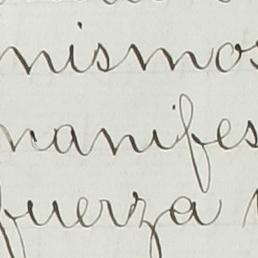 mismos
manifes
fuerza